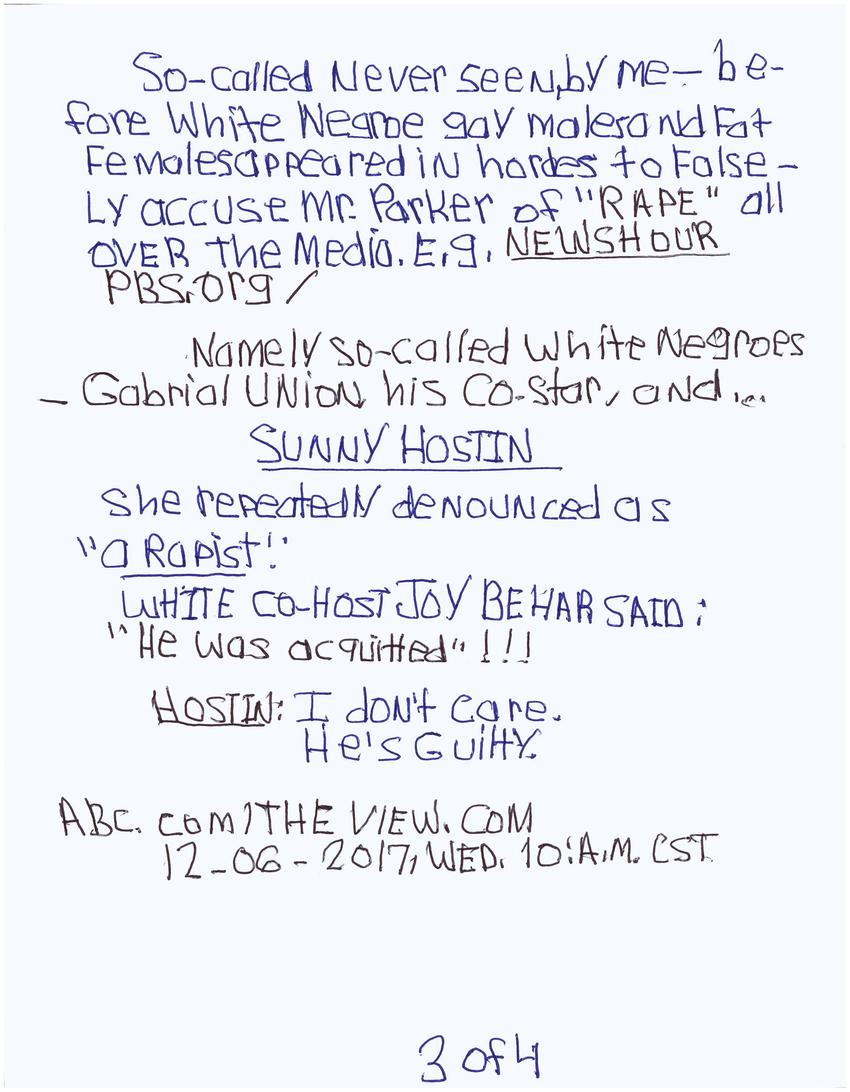 So-called Never seen, by me — be-
fore White Negroe gay males and Fat
Females appeared in hordes to False-
Ly accuse Mr. Parker of "RAPE" all
OVER the Media. E.g. NEWSHOUR
PBS.org /
Namely so-called White Negroes
— Gabrial UNION, his Co-Star, and ...
SUNNY HOSTIN
She repeatedly denounced as
"a Rapist!"
WHITE CO-HOST JOY BEHAR SAID:
"He was acquitted" !!!
HOSTIN: I don't care.
He's Guilty.
ABC. com/THE VIEW. COM
12-06-2017, WED. 10:A.M. CST
3 of 4